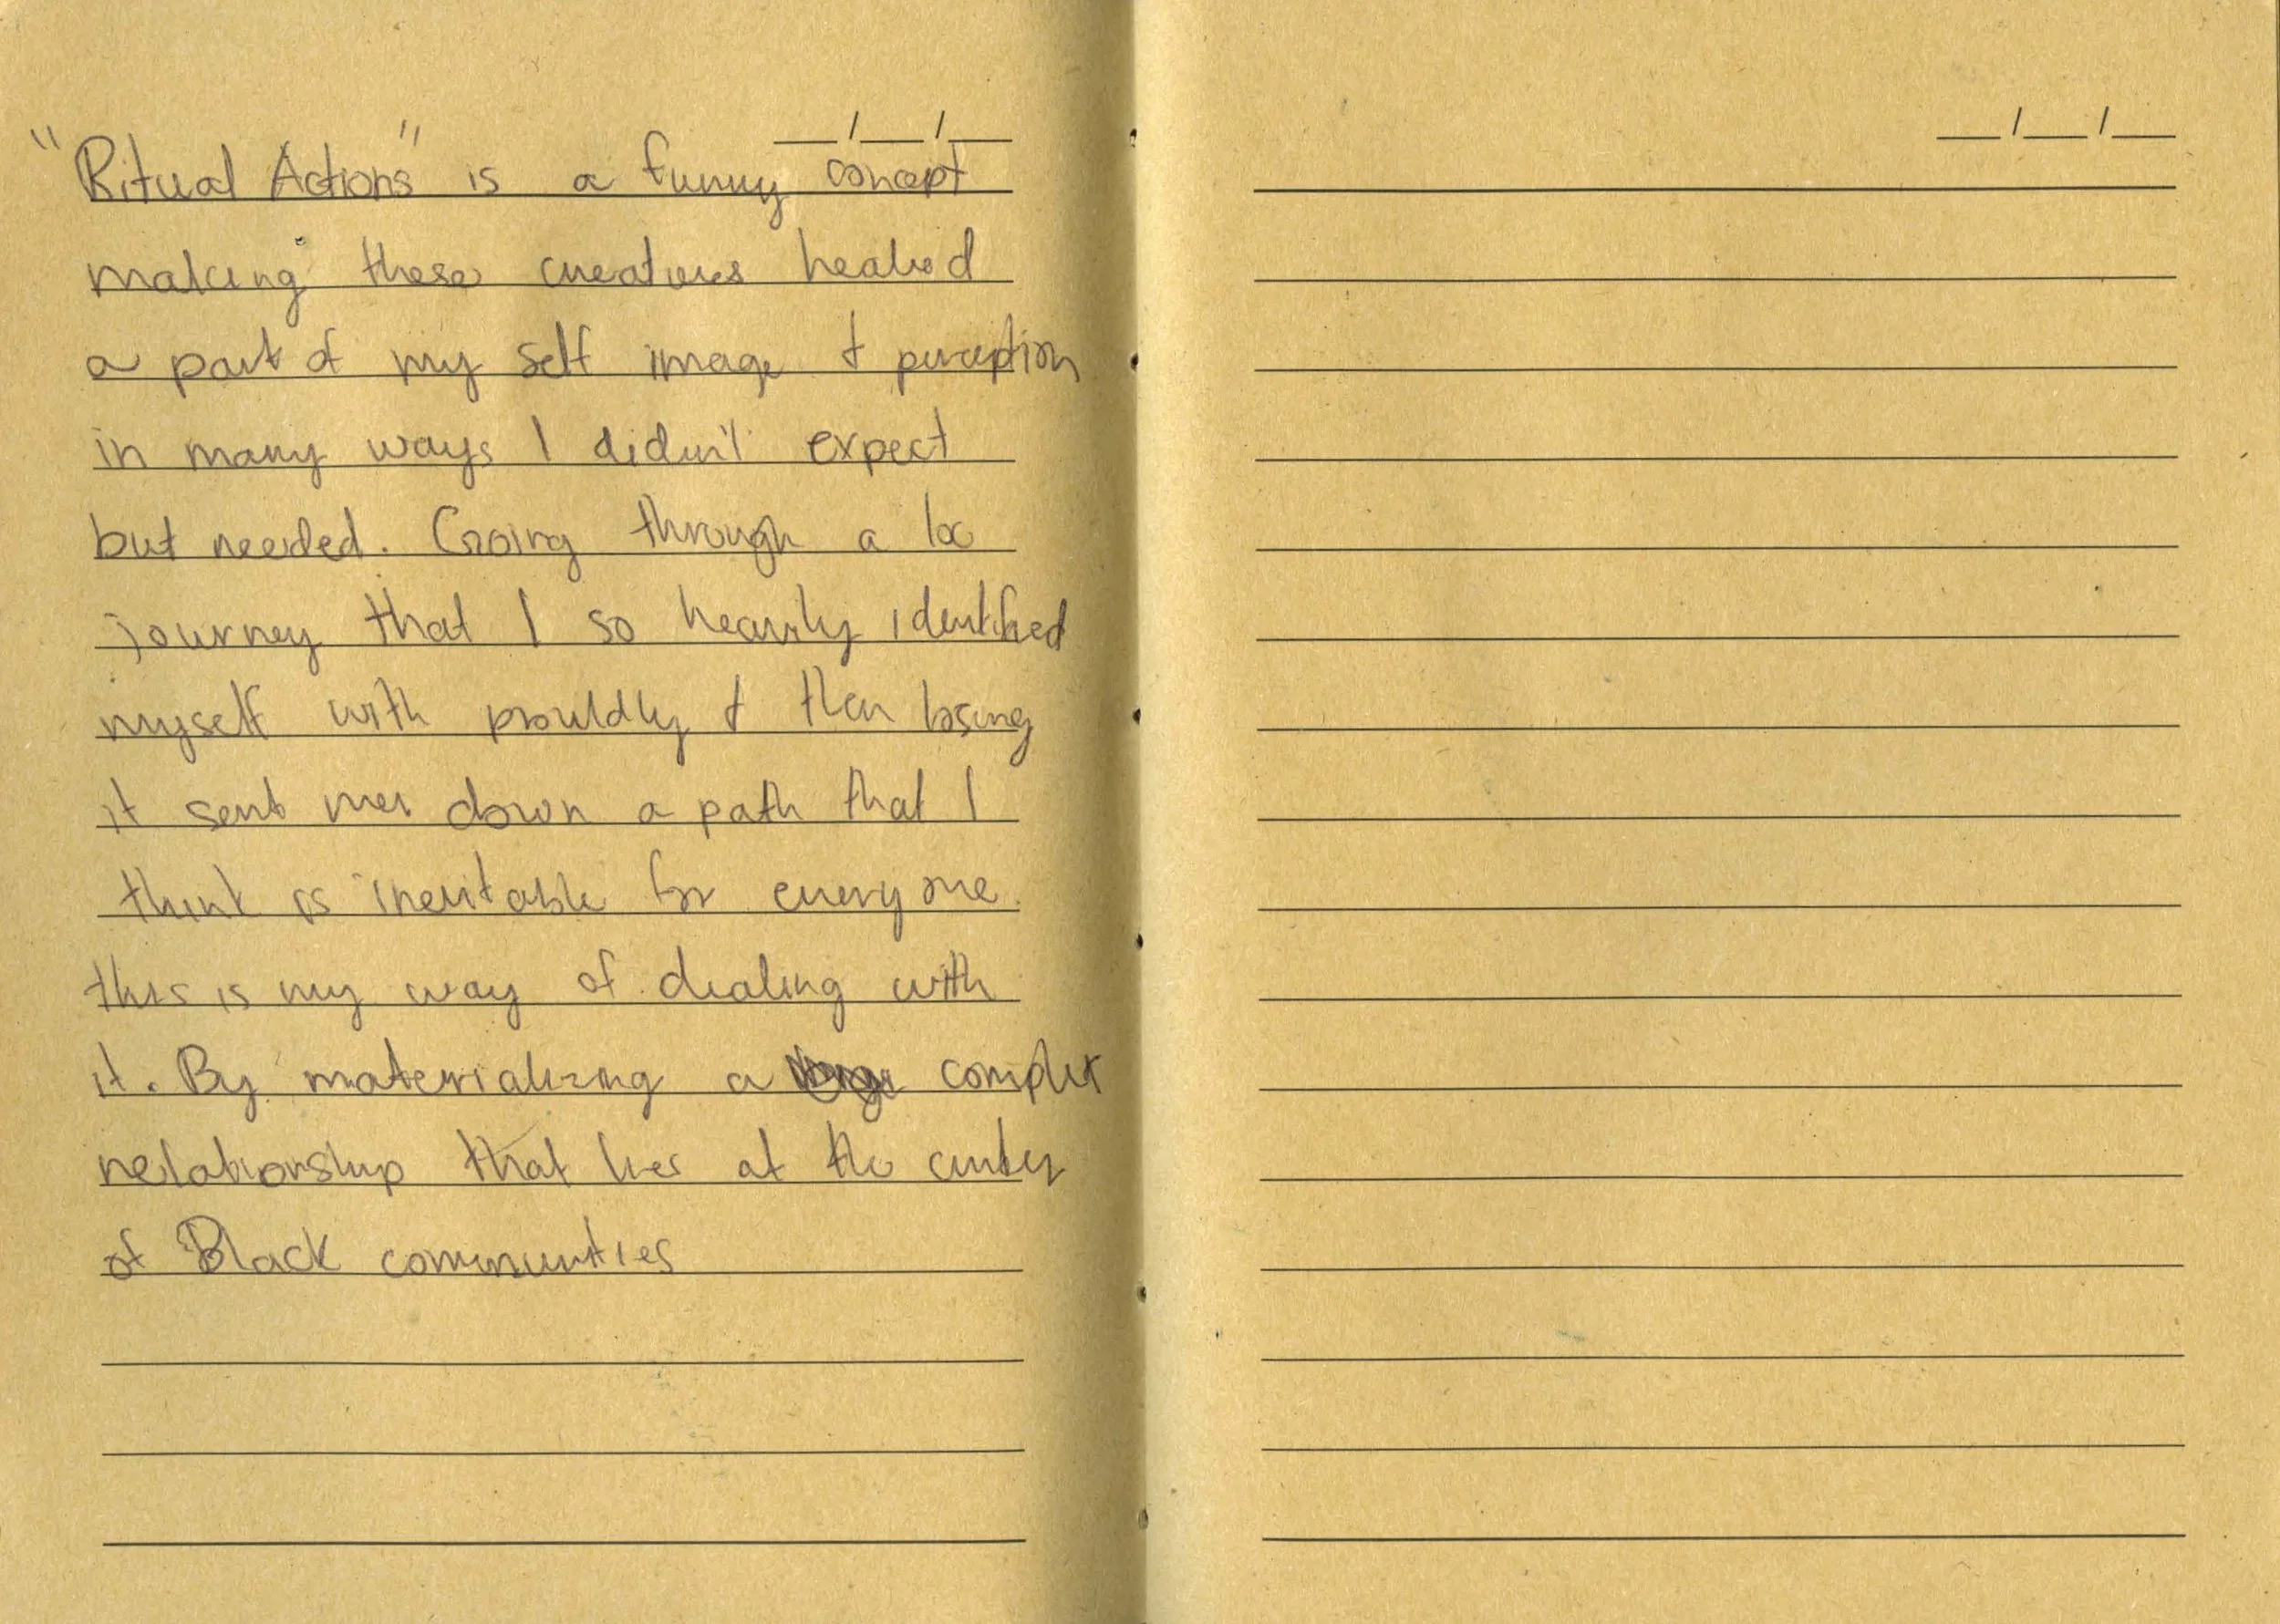 "Ritual Actions" is a funny concept
making these creatures healed
a part of my self image & perception
in many ways I didn't expect
but needed. Going through a loc
journey that I so heavily identified
myself with prouldly & then losing
it sent me down a path that I
think is inevitable for everyone.
this is my way of dealing with
it. By materializing a complex
relationship that lies at the center
of Black communities